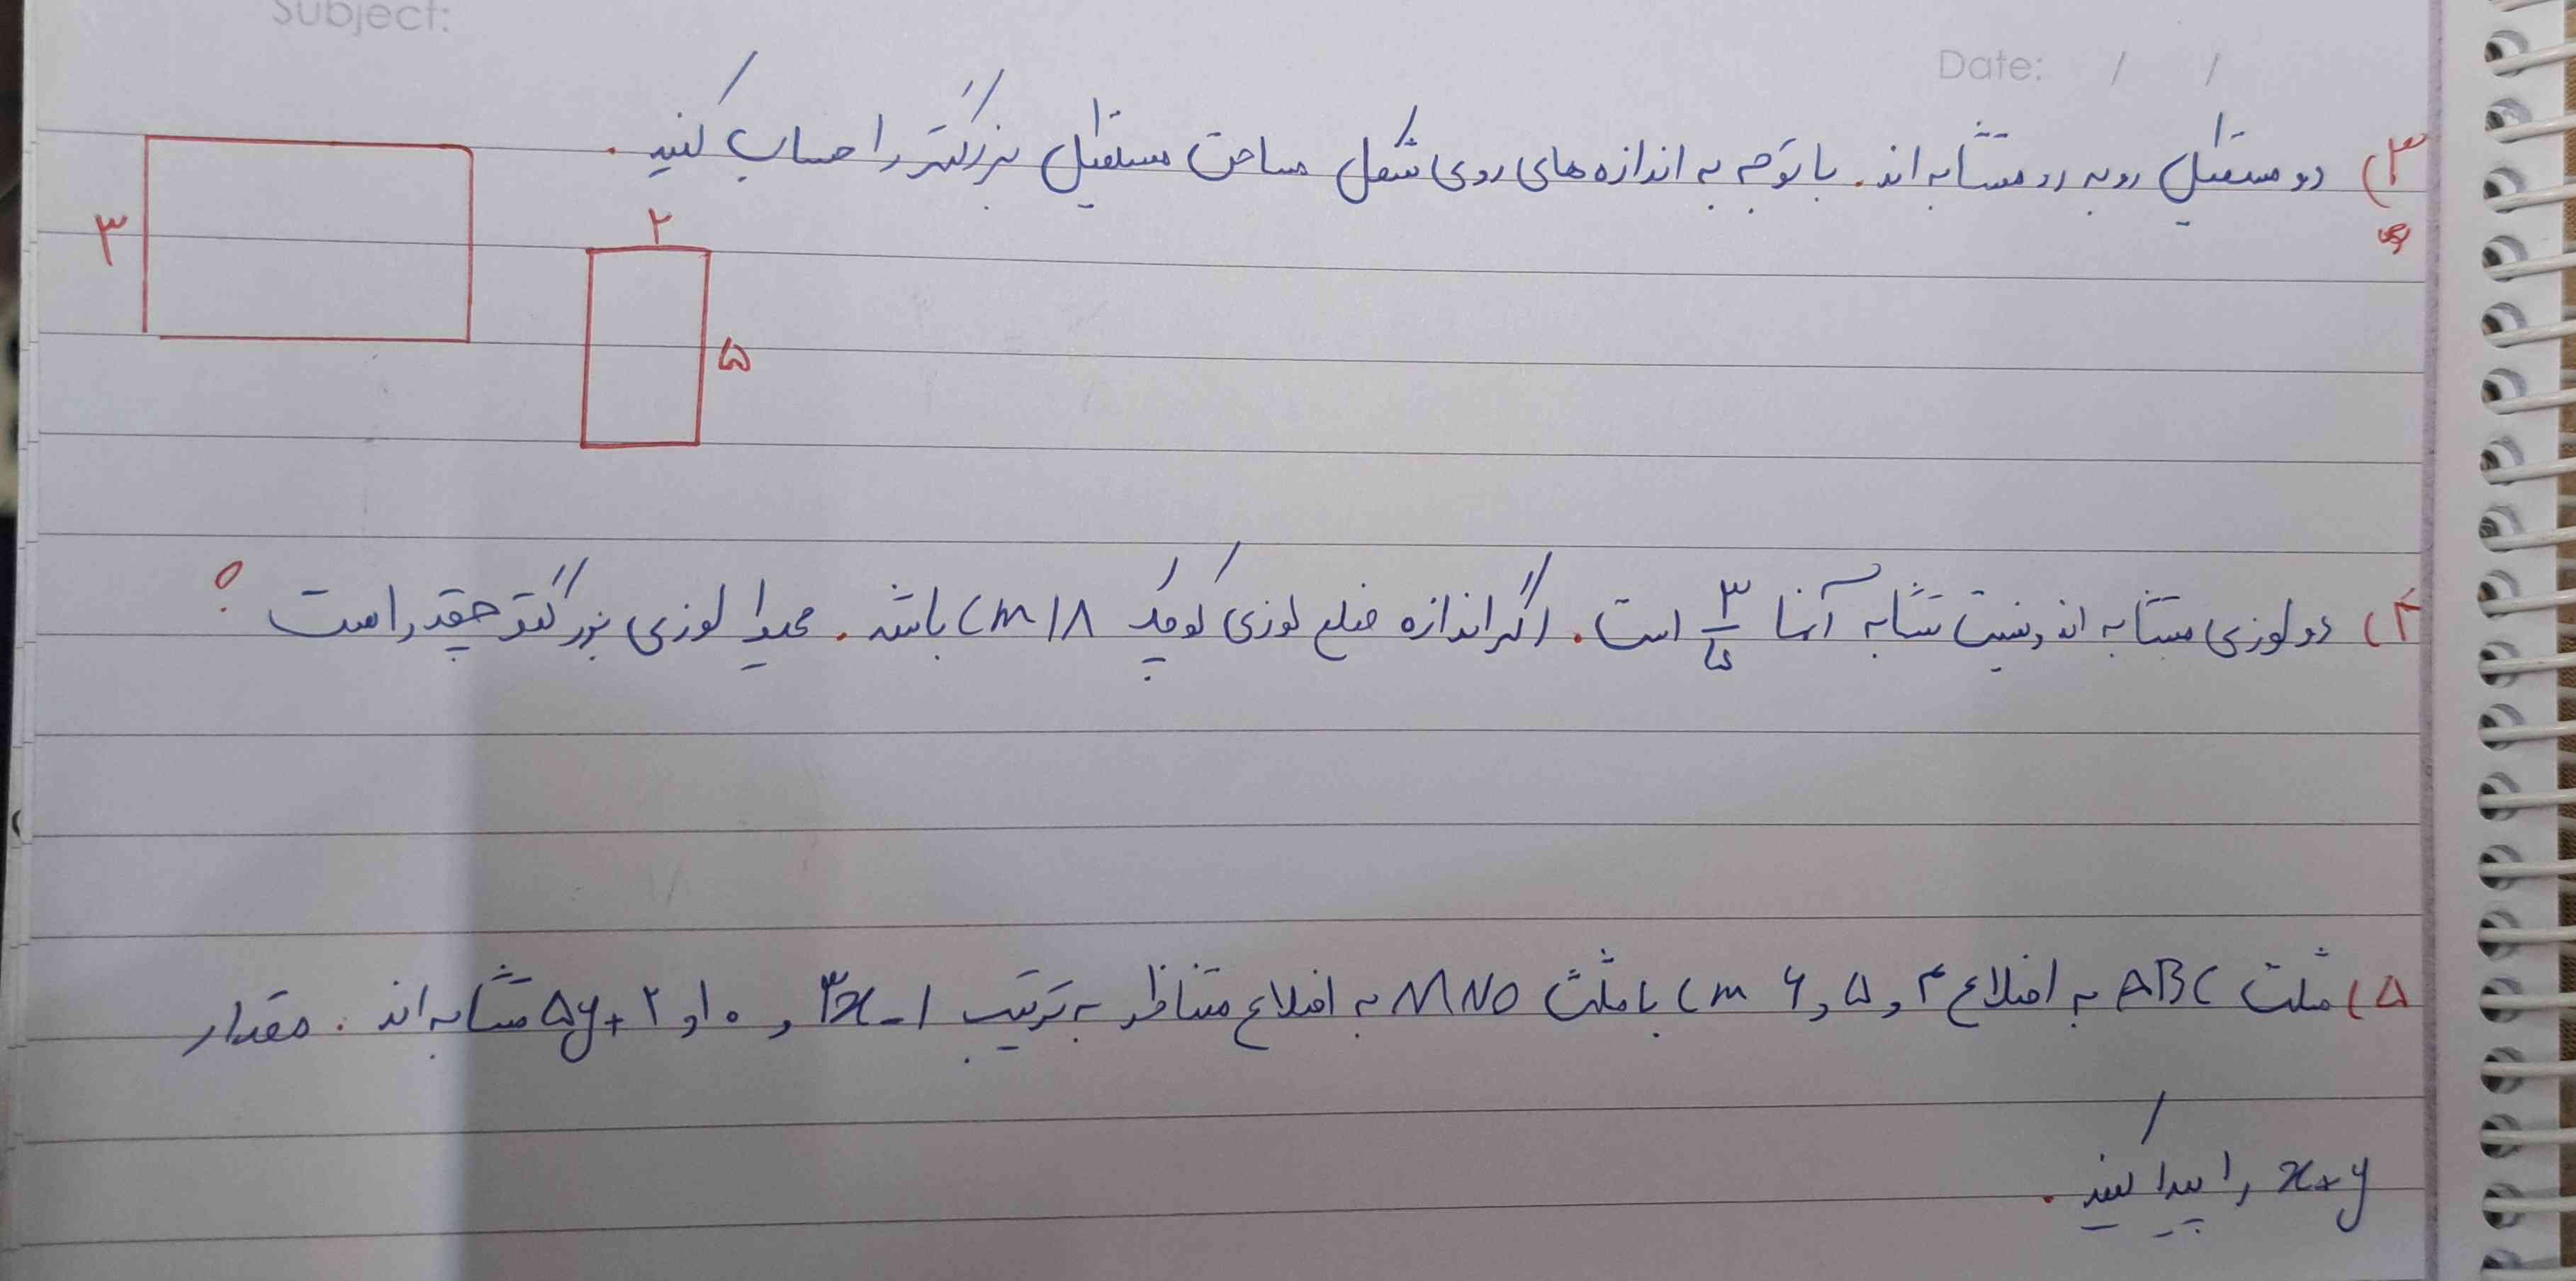 Subject:
Date: / /
۳) دو مستطیل روبه رو متشابه اند. با توجه به اندازه های روی شکل مساحت مستطیل بزرگتر را حساب کنید.
۳
۲
۵
۴) دو لوزی متشابه اند و نسبت تشابه آنها ۳/۵ است. اگر اندازه ضلع لوزی کوچک ۱۸ cm باشد. محیط لوزی بزرگتر چقدر است؟
۵) مثلث ABC به اضلاع ۴ و ۵ و ۶ cm با مثلث MNO به اضلاع متناظر به ترتیب ۳x-۱ و ۱۰ و ۵y+۲ متشابه اند. مقدار
x+y را پیدا کنید.